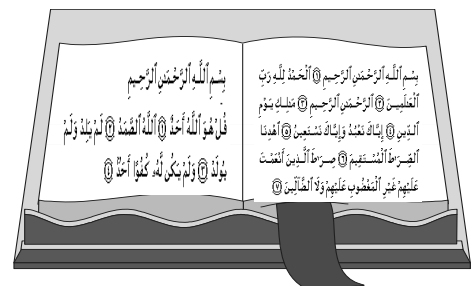 بِسْمِ ٱللَّهِ ٱلرَّحْمَٰنِ ٱلرَّحِيمِ ۝١ ٱلْحَمْدُ لِلَّهِ رَبِّ
ٱلْعَٰلَمِينَ ۝٢ ٱلرَّحْمَٰنِ ٱلرَّحِيمِ ۝٣ مَٰلِكِ يَوْمِ
ٱلدِّينِ ۝٤ إِيَّاكَ نَعْبُدُ وَإِيَّاكَ نَسْتَعِينُ ۝٥ ٱهْدِنَا
ٱلصِّرَٰطَ ٱلْمُسْتَقِيمَ ۝٦ صِرَٰطَ ٱلَّذِينَ أَنْعَمْتَ
عَلَيْهِمْ غَيْرِ ٱلْمَغْضُوبِ عَلَيْهِمْ وَلَا ٱلضَّآلِّينَ ۝٧
بِسْمِ ٱللَّهِ ٱلرَّحْمَٰنِ ٱلرَّحِيمِ
قُلْ هُوَ ٱللَّهُ أَحَدٌ ۝١ ٱللَّهُ ٱلصَّمَدُ ۝٢ لَمْ يَلِدْ وَلَمْ
يُولَدْ ۝٣ وَلَمْ يَكُن لَّهُۥ كُفُوًا أَحَدٌۢ ۝٤